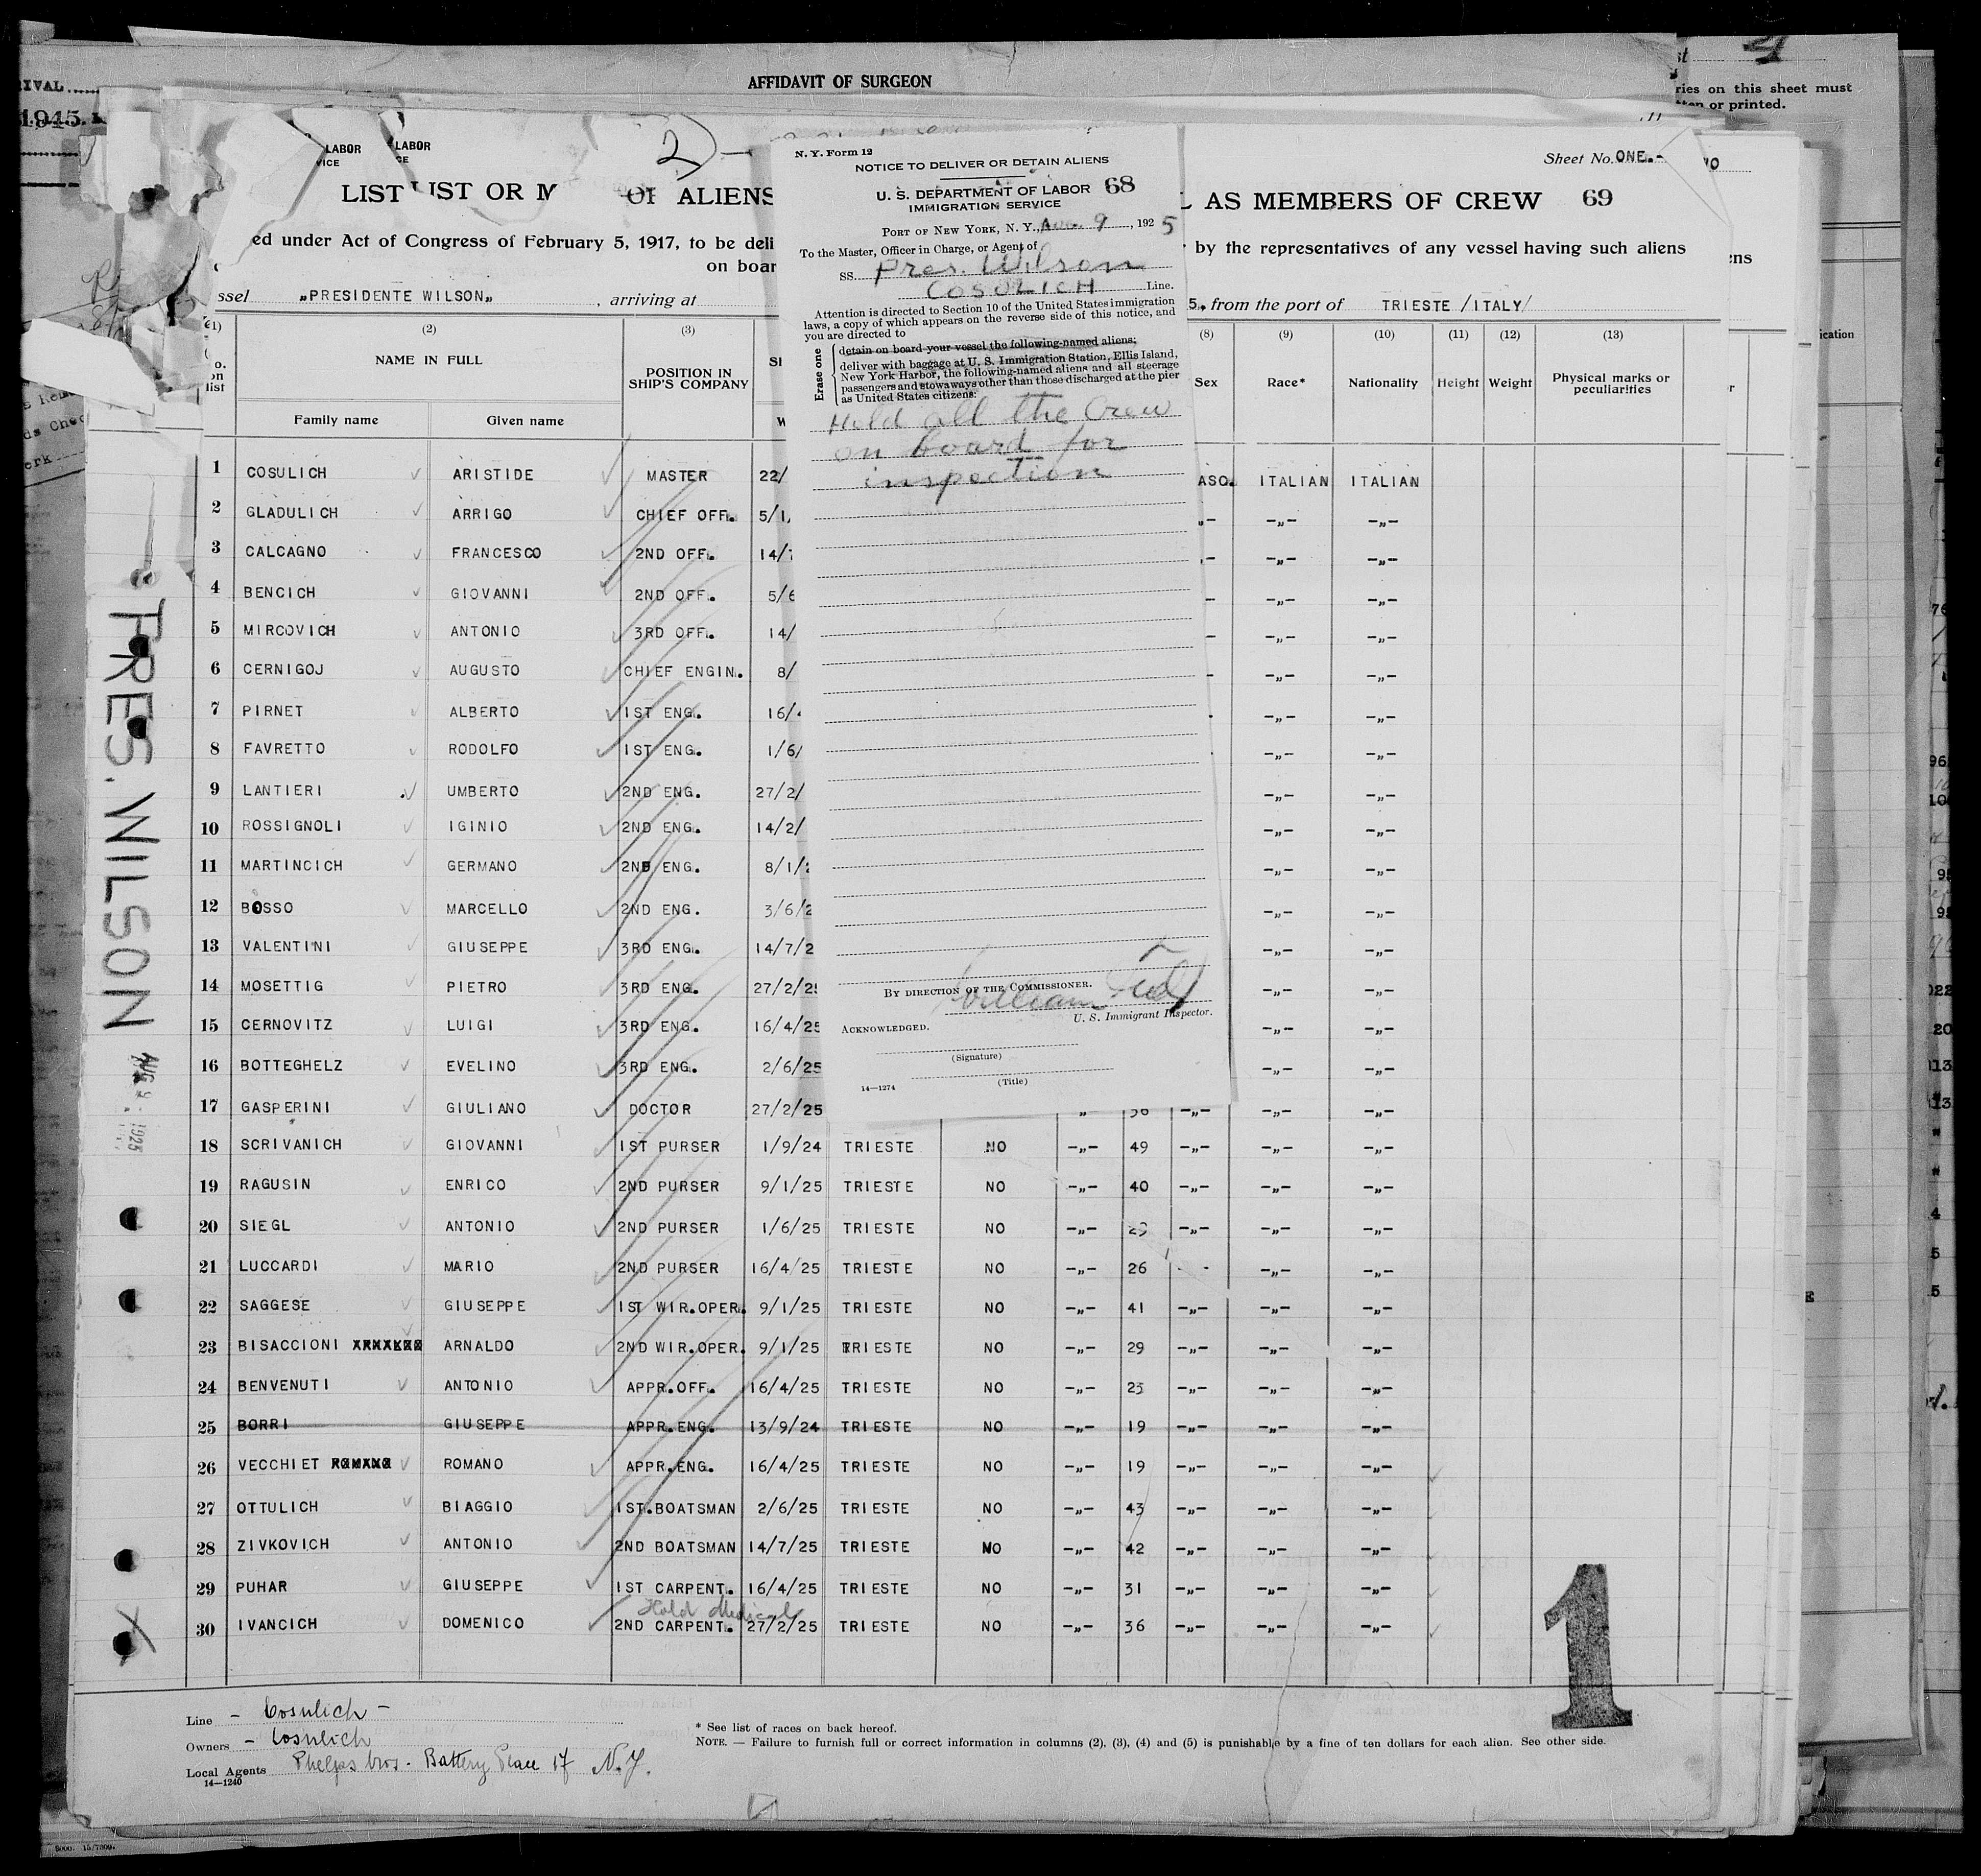 AFFIDAVIT OF SURGEON
RIVAL
1945.
ries on this sheet must
or printed.
4
LABOR
LABOR
2
Sheet No. ONE.-
LIST
IST OR M
OF ALIENS
L AS MEMBERS OF CREW 69
ed under Act of Congress of February 5, 1917, to be deli
by the representatives of any vessel having such aliens
on boar
ssel „PRESIDENTE WILSON„ , arriving at
5, from the port of TRIESTE /ITALY/
N. Y. Form 12
NOTICE TO DELIVER OR DETAIN ALIENS
U. S. DEPARTMENT OF LABOR 68
IMMIGRATION SERVICE
PORT OF NEW YORK, N. Y., Aug. 9, 1925
To the Master, Officer in Charge, or Agent of
SS. Pres. Wilson
COSULICH Line.
Attention is directed to Section 10 of the United States immigration
laws, a copy of which appears on the reverse side of this notice, and
you are directed to
Erase one
detain on board your vessel the following-named aliens:
deliver with baggage at U. S. Immigration Station, Ellis Island,
New York Harbor, the following-named aliens and all steerage
passengers and stowaways other than those discharged at the pier
as United States citizens:
Hold all the Crew
on board for
inspection
BY DIRECTION OF THE COMMISSIONER.
William
U. S. Immigrant Inspector.
ACKNOWLEDGED.
(Signature)
(Title)
14—1274
(1) (2) (3) (8) (9) (10) (11) (12) (13)
No. on list NAME IN FULL POSITION IN SHIP'S COMPANY Sex Race* Nationality Height Weight Physical marks or peculiarities
Family name Given name
1 COSULICH ARISTIDE MASTER 22/ ASC. ITALIAN ITALIAN
2 GLADULICH ARRIGO CHIEF OFF. 5/1/ -„- -„- -„-
3 CALCAGNO FRANCESCO 2ND OFF. 14/7 -„- -„-
4 BENCICH GIOVANNI 2ND OFF. 5/6 -„- -„-
5 MIRCOVICH ANTONIO 3RD OFF. 14/ -„- -„-
6 CERNIGOJ AUGUSTO CHIEF ENGIN. 8/ -„- -„-
7 PIRNET ALBERTO 1ST ENG. 16/4 -„- -„-
8 FAVRETTO RODOLFO 1ST ENG. 1/6/ -„- -„-
9 LANTIERI UMBERTO 2ND ENG. 27/2/ -„- -„-
10 ROSSIGNOLI IGINIO 2ND ENG. 14/2/ -„- -„-
11 MARTINCICH GERMANO 2ND ENG. 8/1/2 -„- -„-
12 BOSSO MARCELLO 2ND ENG. 3/6/2 -„- -„-
13 VALENTINI GIUSEPPE 3RD ENG. 14/7/2 -„- -„-
14 MOSETTIG PIETRO 3RD ENG. 27/2/25 -„- -„-
15 CERNOVITZ LUIGI 3RD ENG. 16/4/25 -„- -„-
16 BOTTEGHELZ EVELINO 3RD ENG. 2/6/25 -„- -„-
17 GASPERINI GIULIANO DOCTOR 27/2/25 -„- -„- -„-
18 SCRIVANICH GIOVANNI 1ST PURSER 1/9/24 TRIESTE NO -„- 49 -„- -„- -„-
19 RAGUSIN ENRICO 2ND PURSER 9/1/25 TRIESTE NO -„- 40 -„- -„- -„-
20 SIEGL ANTONIO 2ND PURSER 1/6/25 TRIESTE NO -„- 29 -„- -„- -„-
21 LUCCARDI MARIO 2ND PURSER 16/4/25 TRIESTE NO -„- 26 -„- -„-
22 SAGGESE GIUSEPPE 1ST WIR.OPER. 9/1/25 TRIESTE NO -„- 41 -„- -„- -„-
23 BISACCIONI ARNALDO 2ND WIR.OPER. 9/1/25 TRIESTE NO -„- 29 -„- -„- -„-
24 BENVENUTI ANTONIO APPR.OFF. 16/4/25 TRIESTE NO -„- 23 -„- -„- -„-
25 BORRI GIUSEPPE APPR.ENG. 13/9/24 TRIESTE NO -„- 19 -„- -„- -„-
26 VECCHIET ROMANO APPR.ENG. 16/4/25 TRIESTE NO -„- 19 -„- -„- -„-
27 OTTULICH BIAGGIO 1ST.BOATSMAN 2/6/25 TRIESTE NO -„- 43 -„- -„- -„-
28 ZIVKOVICH ANTONIO 2ND BOATSMAN 14/7/25 TRIESTE NO -„- 42 -„- -„- -„-
29 PUHAR GIUSEPPE 1ST CARPENT. 16/4/25 TRIESTE NO -„- 31 -„- -„- -„-
Hold Medical
30 IVANCICH DOMENICO 2ND CARPENT. 27/2/25 TRIESTE NO -„- 36 -„- -„- -„-
PRES. WILSON
AUG 9 1925
1
Line - Cosulich -
Owners - Cosulich
Local Agents Phelps bros. Battery Place 17 N.Y.
14—1240
* See list of races on back hereof.
NOTE. — Failure to furnish full or correct information in columns (2), (3), (4) and (5) is punishable by a fine of ten dollars for each alien. See other side.